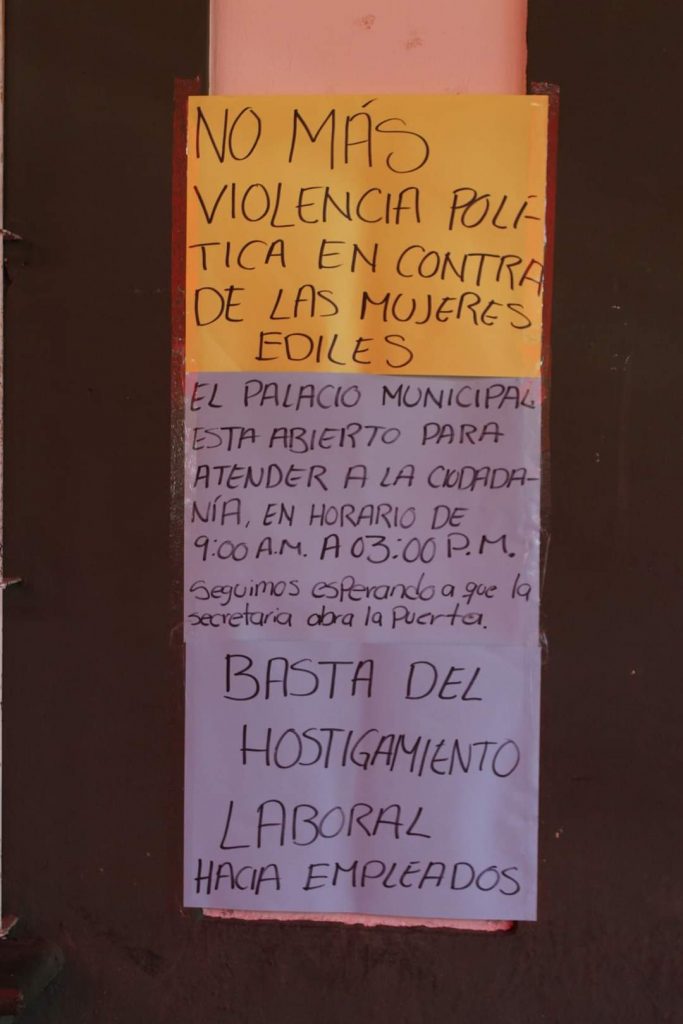 NO MÁS
VIOLENCIA POLÍ-
TICA EN CONTRA
DE LAS MUJERES
EDILES
EL PALACIO MUNICIPAL
ESTA ABIERTO PARA
ATENDER A LA CIUDADA-
NÍA, EN HORARIO DE
9:00 A.M. A 03:00 P.M.
Seguimos esperando a que la
secretaria abra la Puerta.
BASTA DEL
HOSTIGAMIENTO
LABORAL
HACIA EMPLEADOS